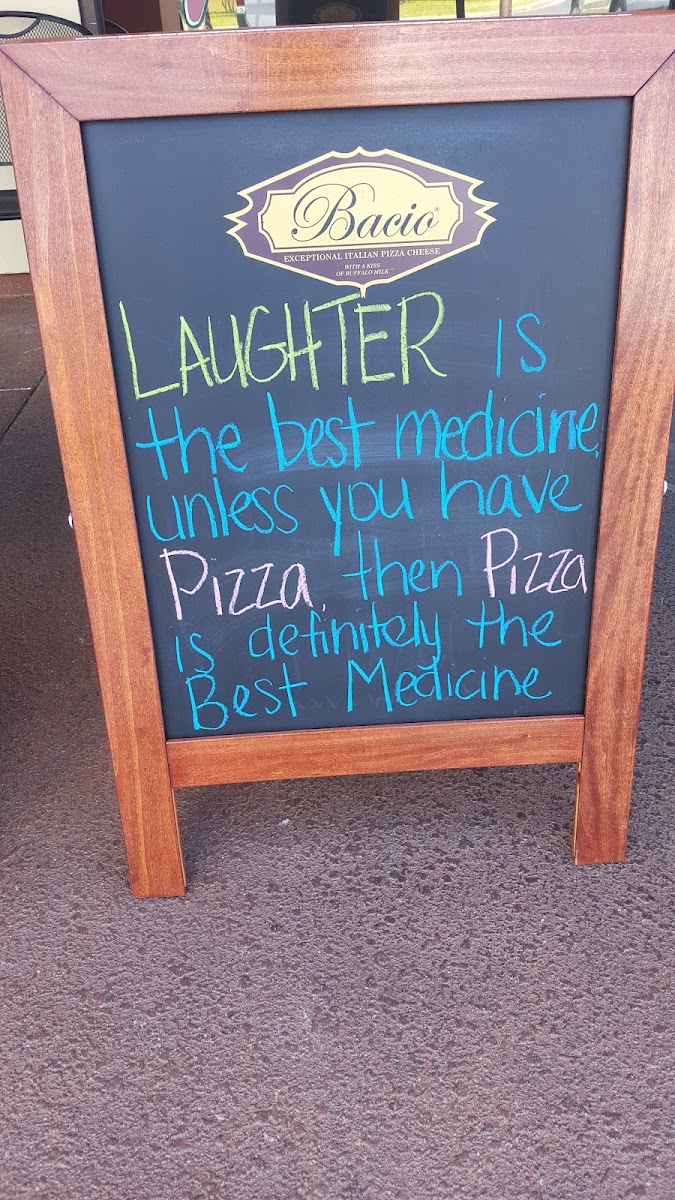 Bacio®
EXCEPTIONAL ITALIAN PIZZA CHEESE
WITH A KISS
OF BUFFALO MILK
LAUGHTER is
the best medicine,
unless you have
Pizza, then Pizza
is definitely the
Best Medicine